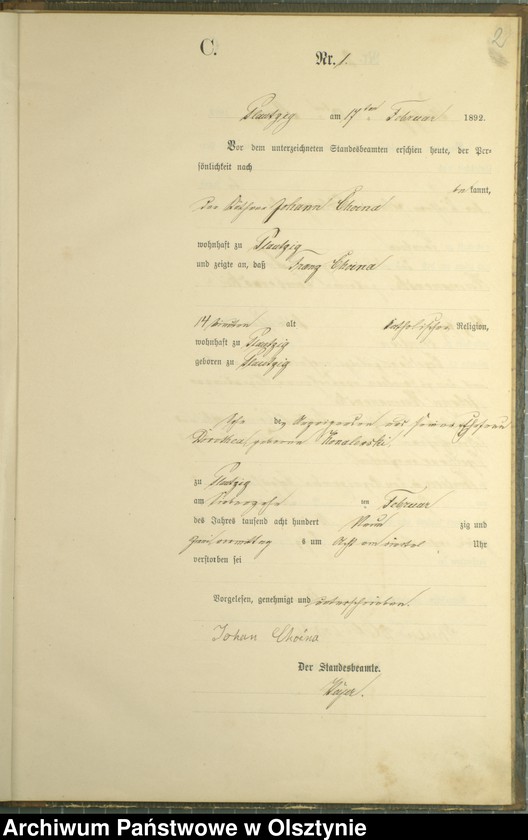 2
C.
Nr. 1.
Plautzig am 17ten Februar 1892.
Vor dem unterzeichneten Standesbeamten erschien heute, der Per-
sönlichkeit nach
bekannt,
der Käthner Johann Choina
wohnhaft zu Plautzig
und zeigte an, daß Franz Choina
14 alt katholischer Religion,
wohnhaft zu Plautzig
geboren zu Plautzig
Sohn des Anzeigenden und seiner Ehefrau
Dorothea geborene Kowalewski.
zu Plautzig
am Siebenzehn ten Februar
des Jahres tausend acht hundert Neun zig und
zwei vormittag s um Acht Uhr
verstorben sei
Vorgelesen, genehmigt und unterschrieben.
Johan Choina
Der Standesbeamte.
Archiwum Państwowe w Olsztynie